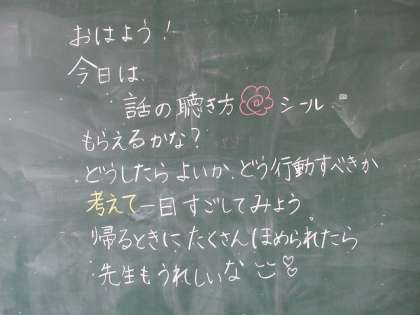 おはよう!
今日は
話の聴き方 シール
もらえるかな?
どうしたらよいか、どう行動すべきか
考えて一日すごしてみよう。
帰るときに、たくさんほめられたら
先生もうれしいな